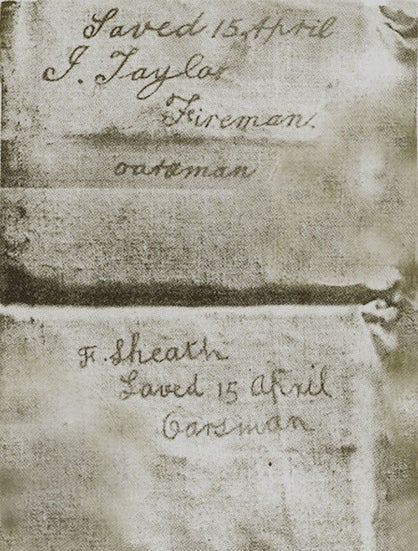 Saved 15, April
J. Taylor
Fireman.
oarsman
F. Sheath
Saved 15 April
Oarsman